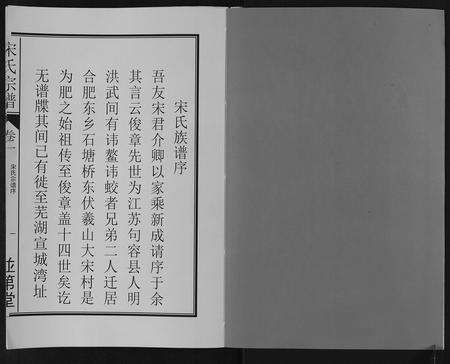 宋氏族谱序
吾友宋君介卿以家乘新成请序于余
其言云俊章先世为江苏句容县人明
洪武间有讳鳌讳蛟者兄弟二人迁居
合肥东乡石塘桥东伏羲山大宋村是
为肥之始祖传至俊章盖十四世矣讫
无谱牒其间已有徙至芜湖宣城湾址
宋氏宗谱
卷一
宋氏宗谱序
一